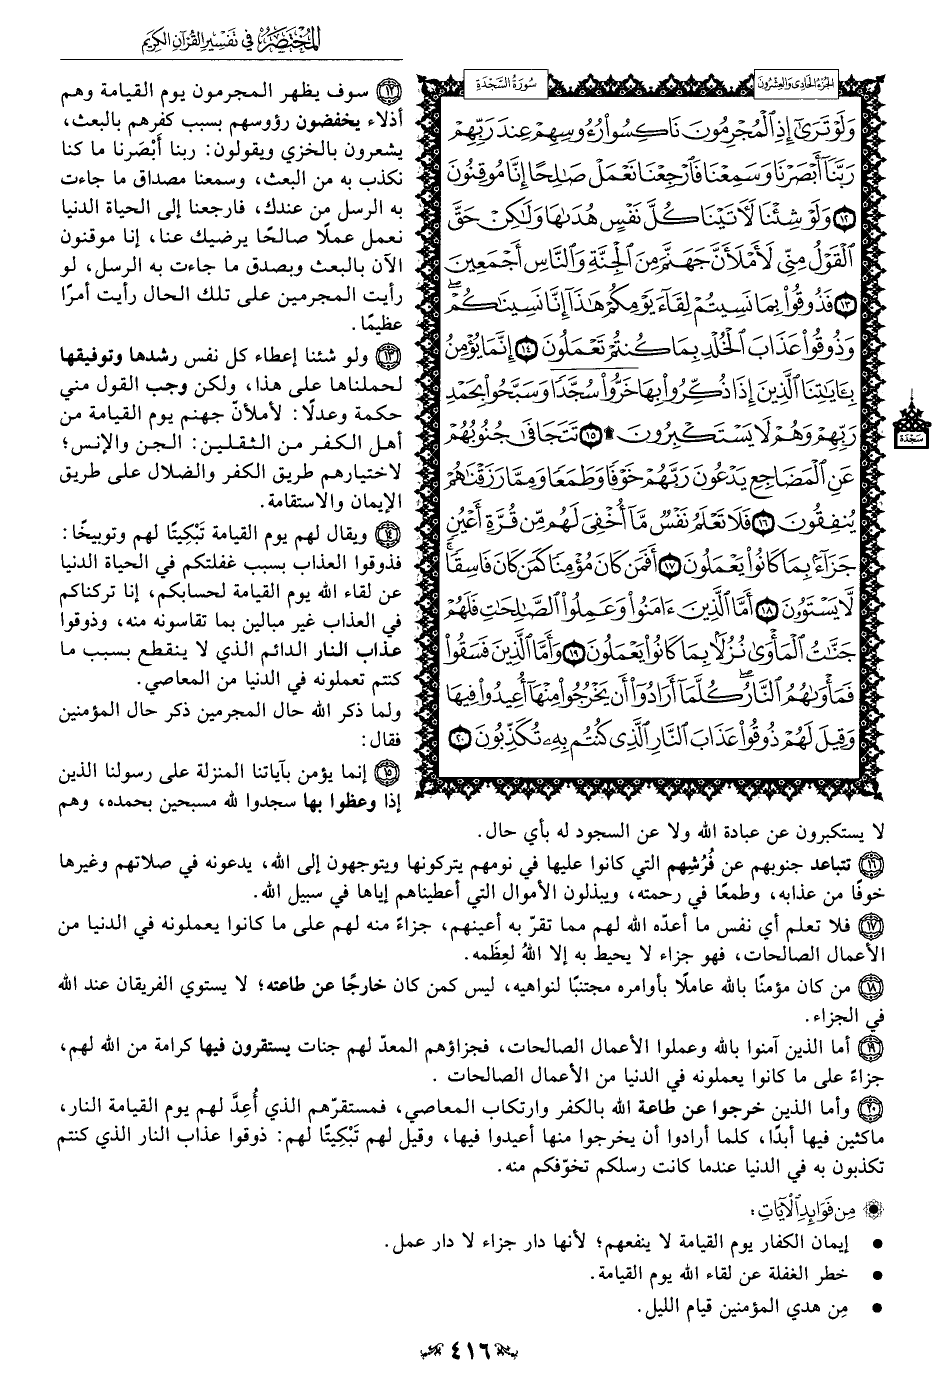 المختصر في تفسير القرآن الكريم
الجزء الحادي والعشرون
سورة السجدة
وَلَوْ تَرَىٰٓ إِذِ ٱلْمُجْرِمُونَ نَاكِسُوا۟ رُءُوسِهِمْ عِندَ رَبِّهِمْ
رَبَّنَآ أَبْصَرْنَا وَسَمِعْنَا فَٱرْجِعْنَا نَعْمَلْ صَٰلِحًا إِنَّا مُوقِنُونَ
١٢ وَلَوْ شِئْنَا لَـَٔاتَيْنَا كُلَّ نَفْسٍ هُدَىٰهَا وَلَٰكِنْ حَقَّ
ٱلْقَوْلُ مِنِّى لَأَمْلَأَنَّ جَهَنَّمَ مِنَ ٱلْجِنَّةِ وَٱلنَّاسِ أَجْمَعِينَ
١٣ فَذُوقُوا۟ بِمَا نَسِيتُمْ لِقَآءَ يَوْمِكُمْ هَٰذَآ إِنَّا نَسِينَٰكُمْ ۖ
وَذُوقُوا۟ عَذَابَ ٱلْخُلْدِ بِمَا كُنتُمْ تَعْمَلُونَ ١٤ إِنَّمَا يُؤْمِنُ
بِـَٔايَٰتِنَا ٱلَّذِينَ إِذَا ذُكِّرُوا۟ بِهَا خَرُّوا۟ سُجَّدًا وَسَبَّحُوا۟ بِحَمْدِ
رَبِّهِمْ وَهُمْ لَا يَسْتَكْبِرُونَ ۩ ١٥ تَتَجَافَىٰ جُنُوبُهُمْ
سجدة
عَنِ ٱلْمَضَاجِعِ يَدْعُونَ رَبَّهُمْ خَوْفًا وَطَمَعًا وَمِمَّا رَزَقْنَٰهُمْ
يُنفِقُونَ ١٦ فَلَا تَعْلَمُ نَفْسٌ مَّآ أُخْفِىَ لَهُم مِّن قُرَّةِ أَعْيُنٍ
جَزَآءًۢ بِمَا كَانُوا۟ يَعْمَلُونَ ١٧ أَفَمَن كَانَ مُؤْمِنًا كَمَن كَانَ فَاسِقًا ۚ
لَّا يَسْتَوُۥنَ ١٨ أَمَّا ٱلَّذِينَ ءَامَنُوا۟ وَعَمِلُوا۟ ٱلصَّٰلِحَٰتِ فَلَهُمْ
جَنَّٰتُ ٱلْمَأْوَىٰ نُزُلًۢا بِمَا كَانُوا۟ يَعْمَلُونَ ١٩ وَأَمَّا ٱلَّذِينَ فَسَقُوا۟
فَمَأْوَىٰهُمُ ٱلنَّارُ ۖ كُلَّمَآ أَرَادُوٓا۟ أَن يَخْرُجُوا۟ مِنْهَآ أُعِيدُوا۟ فِيهَا
وَقِيلَ لَهُمْ ذُوقُوا۟ عَذَابَ ٱلنَّارِ ٱلَّذِى كُنتُم بِهِۦ تُكَذِّبُونَ ٢٠
١٢ سوف يظهر المجرمون يوم القيامة وهم
أذلاء يخفضون رؤوسهم بسبب كفرهم بالبعث،
يشعرون بالخزي ويقولون: ربنا أَبْصَرنا ما كنا
نكذب به من البعث، وسمعنا مصداق ما جاءت
به الرسل من عندك، فارجعنا إلى الحياة الدنيا
نعمل عملًا صالحًا يرضيك عنا، إنا موقنون
الآن بالبعث وبصدق ما جاءت به الرسل، لو
رأيت المجرمين على تلك الحال رأيت أمرًا
عظيمًا.
١٣ ولو شئنا إعطاء كل نفس رشدها وتوفيقها
لحملناها على هذا، ولكن وجب القول مني
حكمة وعدلًا: لأملأنّ جهنم يوم القيامة من
أهل الكفر من الثقلين: الجن والإنس؛
لاختيارهم طريق الكفر والضلال على طريق
الإيمان والاستقامة.
١٤ ويقال لهم يوم القيامة تَبْكِيتًا لهم وتوبيخًا:
فذوقوا العذاب بسبب غفلتكم في الحياة الدنيا
عن لقاء الله يوم القيامة لحسابكم، إنا تركناكم
في العذاب غير مبالين بما تقاسونه منه، وذوقوا
عذاب النار الدائم الذي لا ينقطع بسبب ما
كنتم تعملونه في الدنيا من المعاصي.
ولما ذكر الله حال المجرمين ذكر حال المؤمنين
فقال:
١٥ إنما يؤمن بآياتنا المنزلة على رسولنا الذين
إذا وعظوا بها سجدوا لله مسبحين بحمده، وهم
لا يستكبرون عن عبادة الله ولا عن السجود له بأي حال.
١٦ تتباعد جنوبهم عن فُرُشِهم التي كانوا عليها في نومهم يتركونها ويتوجهون إلى الله، يدعونه في صلاتهم وغيرها
خوفًا من عذابه، وطمعًا في رحمته، ويبذلون الأموال التي أعطيناهم إياها في سبيل الله.
١٧ فلا تعلم أي نفس ما أعدّه الله لهم مما تقرّ به أعينهم، جزاءً منه لهم على ما كانوا يعملونه في الدنيا من
الأعمال الصالحات، فهو جزاء لا يحيط به إلا اللهُ لعِظَمه.
١٨ من كان مؤمنًا بالله عاملًا بأوامره مجتنبًا لنواهيه، ليس كمن كان خارجًا عن طاعته؛ لا يستوي الفريقان عند الله
في الجزاء.
١٩ أما الذين آمنوا بالله وعملوا الأعمال الصالحات، فجزاؤهم المعدّ لهم جنات يستقرون فيها كرامة من الله لهم،
جزاءً على ما كانوا يعملونه في الدنيا من الأعمال الصالحات .
٢٠ وأما الذين خرجوا عن طاعة الله بالكفر وارتكاب المعاصي، فمستقرّهم الذي أُعِدَّ لهم يوم القيامة النار،
ماكثين فيها أبدًا، كلما أرادوا أن يخرجوا منها أعيدوا فيها، وقيل لهم تَبْكِيتًا لهم: ذوقوا عذاب النار الذي كنتم
تكذبون به في الدنيا عندما كانت رسلكم تخوّفكم منه.
من فوائد الآيات:
• إيمان الكفار يوم القيامة لا ينفعهم؛ لأنها دار جزاء لا دار عمل.
• خطر الغفلة عن لقاء الله يوم القيامة.
• مِن هدي المؤمنين قيام الليل.
٤١٦